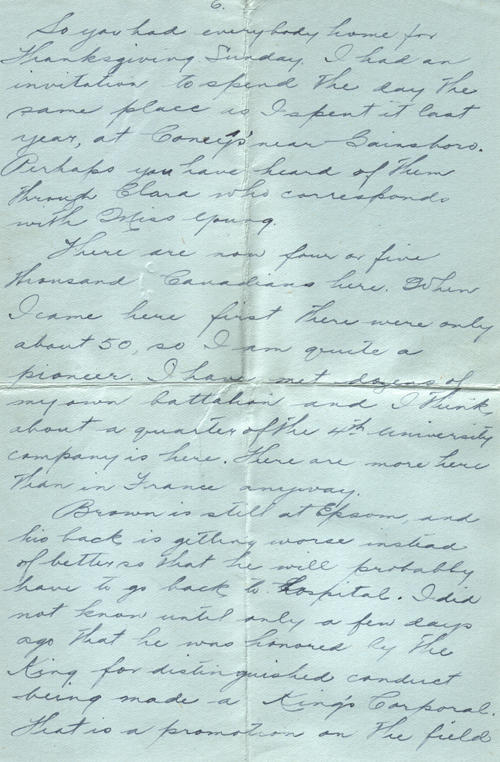 6.
So you had everybody home for
Thanksgiving Sunday. I had an
invitation to spend the day the
same place as I spent it last
year, at Coney's near Gainsboro.
Perhaps you have heard of them
through Clara who corresponds
with Miss Young.
There are now four or five
thousand Canadians here. When
I came here first there were only
about 50, so I am quite a
pioneer. I have met dozens of
my own battalion and I think
about a quarter of the 4th University
company is here. There are more here
than in France anyway.
Brown is still at Epsom, and
his back is getting worse instead
of better so that he will probably
have to go back to hospital. I did
not know until only a few days
ago that he was honored by the
King for distinguished conduct
being made a King's Corporal.
That is a promotion on the field